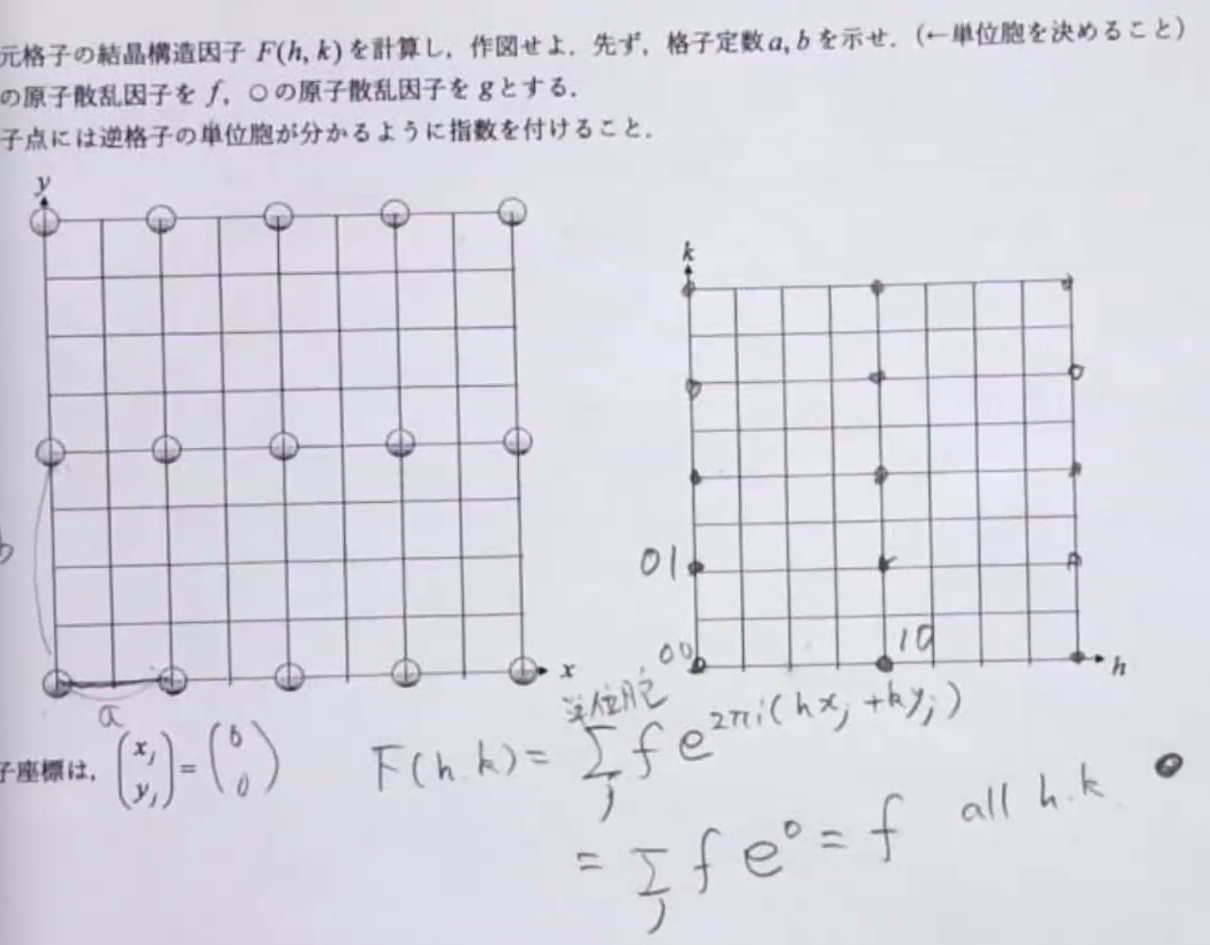 元格子の結晶構造因子 F(h, k) を計算し,作図せよ.先ず,格子定数 a, b を示せ.(←単位胞を決めること)
の原子散乱因子を f,○の原子散乱因子を g とする.
子点には逆格子の単位胞が分かるように指数を付けること.
y
k
b
01
00
10
x
h
a
単位胞
子座標は, (x_j y_j) = (0 0)
F(h.k) = Σ_j f e^{2πi(hx_j + ky_j)}
= Σ_j f e^0 = f all h.k